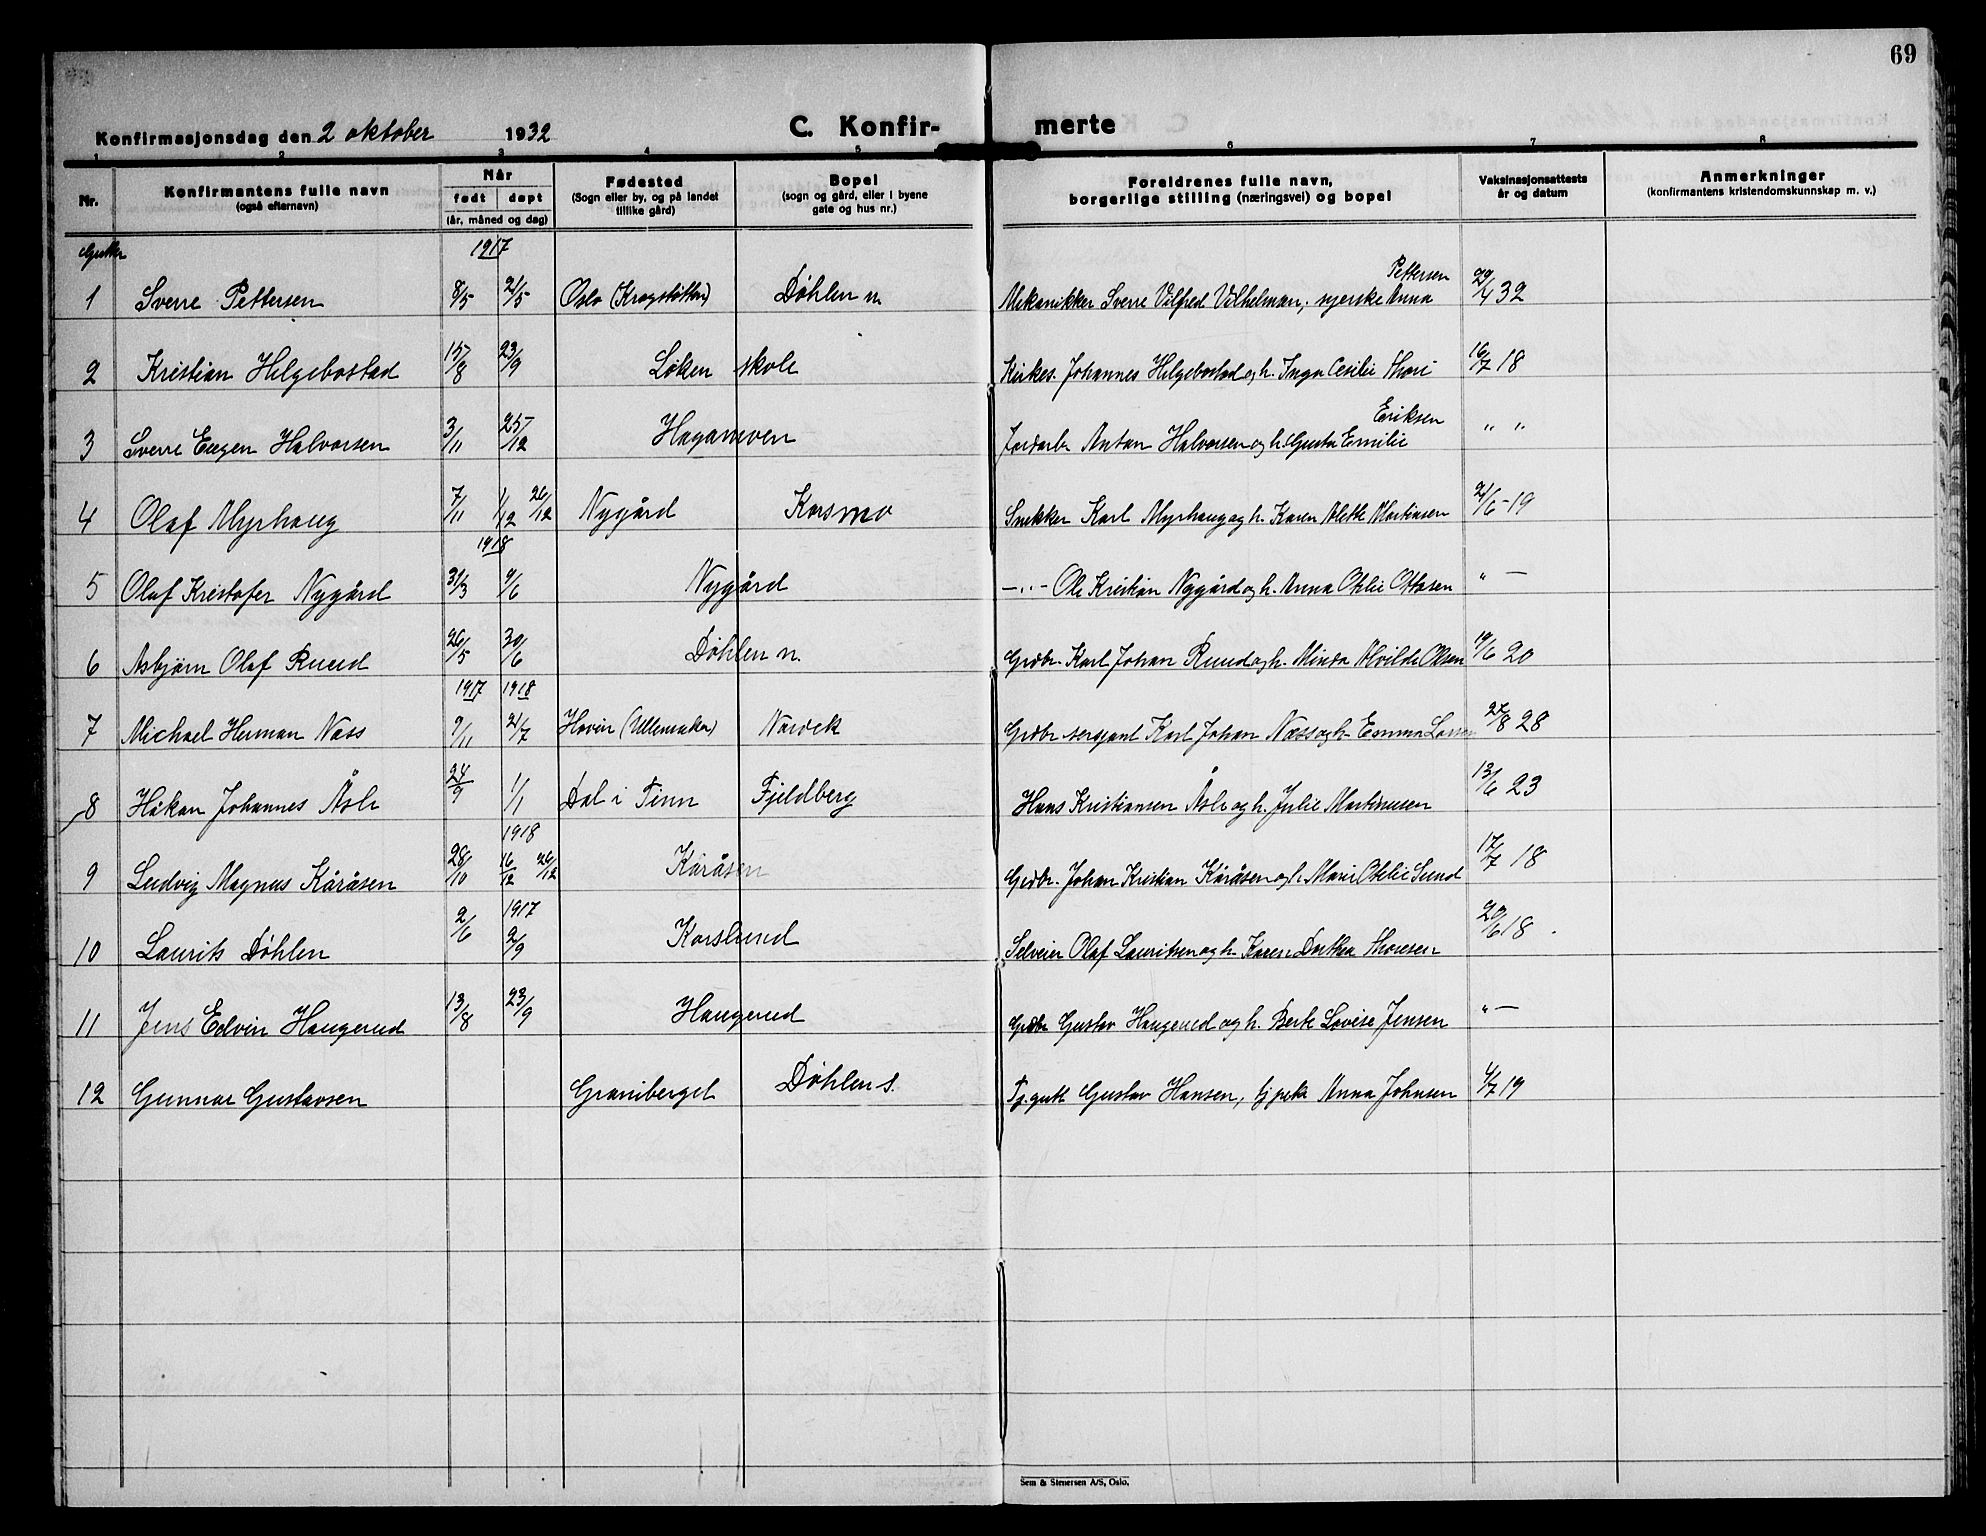 69
Konfirmasjonsdag den 2 oktober 1932 C. Konfir- merte
1 2 3 4 5 6 7 8
Nr. Konfirmantens fulle navn (også efternavn) Når født døpt (år, måned og dag) Fødested (Sogn eller by, og på landet tillike gård) Bopel (sogn og gård, eller i byene gate og hus nr.) Foreldrenes fulle navn, borgerlige stilling (næringsvei) og bopel Vaksinasjonsattests år og datum Anmerkninger (konfirmantens kristendomskunnskap m. v.)
Gutter 1917
1 Sverre Pettersen 8/5 21/5 Oslo Døhlen n. Mekanikker Sverre Vilfred Vilhelmsen, syerske Anna Pettersen 29/4 32
2 Kristian Helgebostad 15/8 23/9 Løken skole Kirkes. Johannes Helgebostad og h. Inga Cesilie 16/7 18
3 Sverre Eugen Halvorsen 3/11 25/12 Jordarb. Anton Halvorsen og h. Gusta Emilie Eriksen " "
4 Olaf Myrhaug 7/11 1/12 26/12 Nygård Korsmo Snekker Karl Myrhaug og h. Karen Alette Martinsen 21/6-19
1918
5 Olaf Kristofer Nygård 31/3 9/6 Nygård —"— Ole Kristian Nygård og h. Anna Otilie Ottosen " —
6 Asbjørn Olaf Ruud 26/5 30/6 Døhlen n. Grdbr. Karl Johan Ruud og h. Minda Alvilde Olsen 19/6 20
1917 1918
7 Michael Herman Næss 9/11 21/7 Hovin (Ullensaker) Nordek Grdbr. sersjant Karl Johan Næss og h. Emma 27/8 28
8 Håkon Johannes Åsli 24/9 1/1 Dal i Tinn Fjeldberg Hans Kristiansen Åsli og h. Julie Martinusen 13/6 23
1918
9 Ludvig Magnus Kåråsen 28/10 16/12 26/12 Kåråsen Grdbr. Johan Kristian Kåråsen og h. Marie Otelie Sund 17/7 18
1917
10 Laurits Døhlen 2/6 2/9 Korslund Selveier Olaf Lauritsen og h. Karen Dorthea Thoresen 20/6 18
11 Jens Edvin Haugerud 13/8 23/9 Haugerud Grdbr. Gustav Haugerud og h. Berte Lovise Jensen " —
12 Gunnar Gustavsen Graniberget Døhlen s. Tj.gutt Gustav Hansen, tj.pike Anna Johnsen 4/7 19
Sem & Stenersen A/S, Oslo.